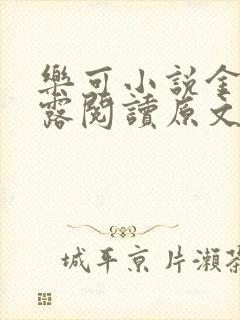 樂可小説金
露閱讀原文
城平京 片瀬茶